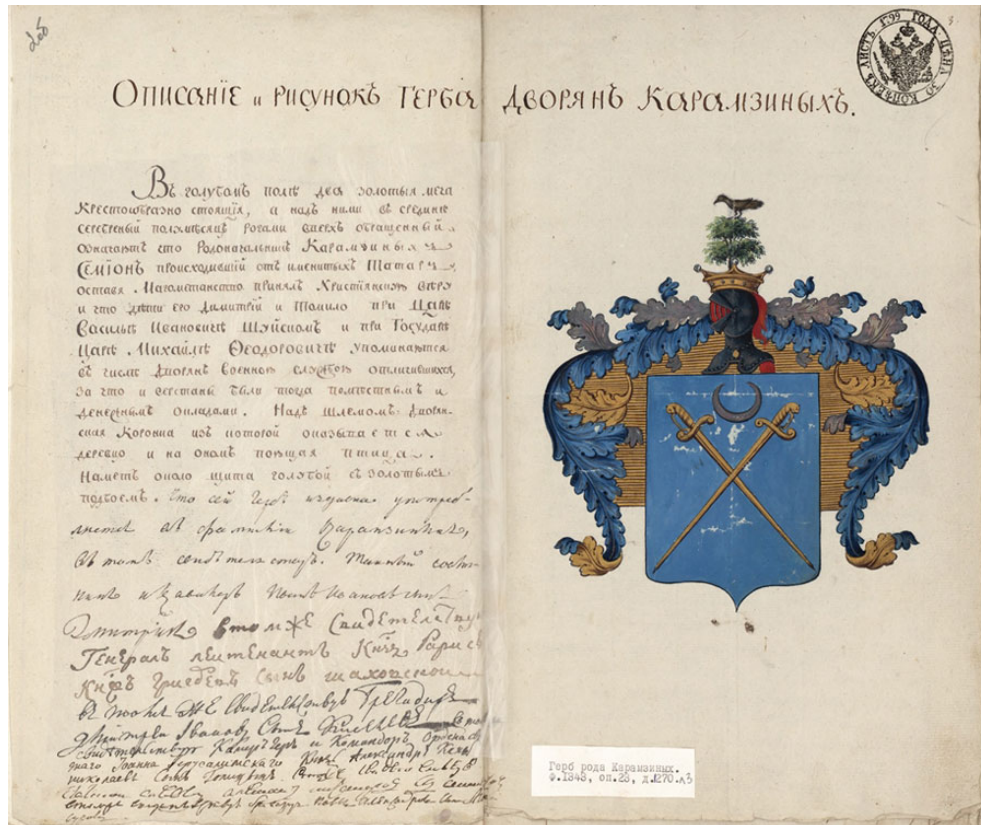 Описаніе и рисунокъ Герба Дворянъ Карамзиныхъ.
ЛИСТЪ 1799 ГОДА ЦѢНА 30 КОПѢЕКЪ
Въ голубомъ полѣ два золотыя меча
Крестообразно стоящія, а надъ ними въ срединѣ
серебреный полумѣсяцъ рогами вверхъ обращенный
означаютъ что Родоначальникъ Карамзиныхъ
Семіонъ происходившій отъ именитыхъ Татаръ,
оставя Магометанство принялъ Христіянскую вѣру
и что дѣти его Димитрій и Томило при Царѣ
Васильѣ Ивановичѣ Шуйскомъ и при Государѣ
Царѣ Михайлѣ Ѳеодоровичѣ упоминаются
въ числѣ Дворянъ военною службою отличившихся,
за что и верстаны были тогда помѣстнымъ и
денежнымъ окладами. Надъ шлемомъ Дворян-
ская Коронна изъ которой оказывается
деревцо и на ономъ поющая птица.
Наметъ около щита голубой съ золотымъ
подбоемъ. Что сей Гербъ употреб-
ляетъ фамиліи Карамзиныхъ,
въ томъ свидѣтельствуетъ. Тайный совѣт-
никъ и Кавалеръ Ивановъ сынъ
Дмитріевъ в томже Свидетелству
Генералъ леитенантъ Князь Борисъ
Князь Григорьевъ сынъ шаховской
в томже Свидетелствуетъ
Дмитреи Ивановъ Сынъ
Камергеръ и Командоръ Ордена
Іоанна Іерусалимскаго Князь Александръ
николаевъ Сынъ
Герб рода Карамзиных.
Ф.1343, оп.23, д.1270.л3